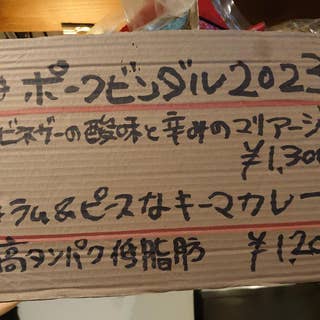 ポークビンダル2023
ビネガーの酸味と辛みのマリアージ
¥1,300
ラム&ピースなキーマカレー
高タンパク低脂肪 ¥1,20